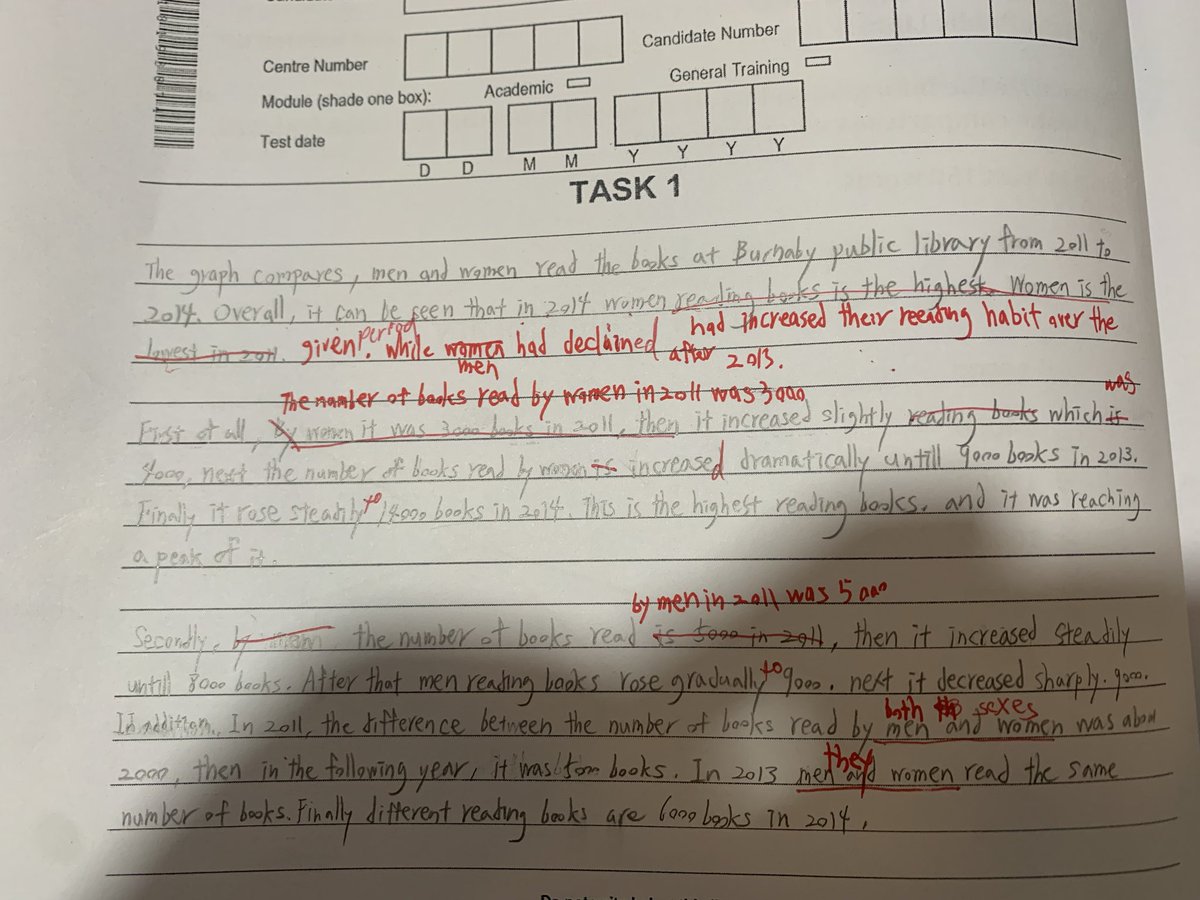 Centre Number
Candidate Number
Module (shade one box): Academic General Training
Test date
D D M M Y Y Y Y
TASK 1
The graph compares, men and women read the books at Burnaby public library from 2011 to
2014. Overall, it can be seen that in 2014 women reading books is the highest. Women is the
lowest in 2011. given period. while women had declined had increased their reeading habit over the
men after 2013.
The number of books read by women in 2011 was 3000
was
First of all, by women it was 3000 books in 2011, then it increased slightly reading books which is
4000, next the number of books read by women is increased dramatically untill 9000 books in 2013.
Finally it rose steadily to 14000 books in 2014. This is the highest reading books. and it was reaching
a peak of it.
by men in 2011 was 5000
Secondly, by the number of books read is 5000 in 2011, then it increased steadily
untill 8000 books. After that men reading books rose gradually to 9000. next it decreased sharply. 9000.
both sexes
In addition, In 2011, the difference between the number of books read by men and women was about
they
2000, then in the following year, it was books. In 2013 men and women read the same
number of books. Finally different reading books are 6000 books in 2014.